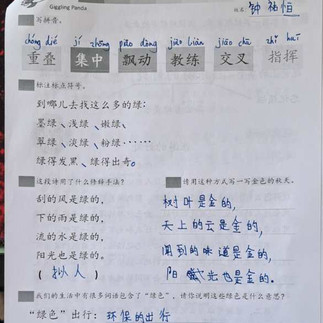 Giggling Panda
班级: 钟祐恒
写拼音。
chóng dié jí zhōng piāo dòng jiào liàn jiāo chā zhǐ huī
重叠 集中 飘动 教练 交叉 指挥
标注标点符号。
到哪儿去找这么多的绿:
墨绿、浅绿、嫩绿、
翠绿、淡绿、粉绿……
绿得发黑、绿得出奇。
这段诗用了什么修辞手法? 请用这种方式写一写金色的秋天。
刮的风是绿的, 树叶是金的,
下的雨是绿的, 天上的云是金的,
流的水是绿的, 闻到的味道是金的,
阳光也是绿的。 阳光也是金的。
( 拟人 )
我们的生活中有很多词语包含了“绿色”,请你说说这些绿色是什么意思?
“绿色”出行: 环保的出行